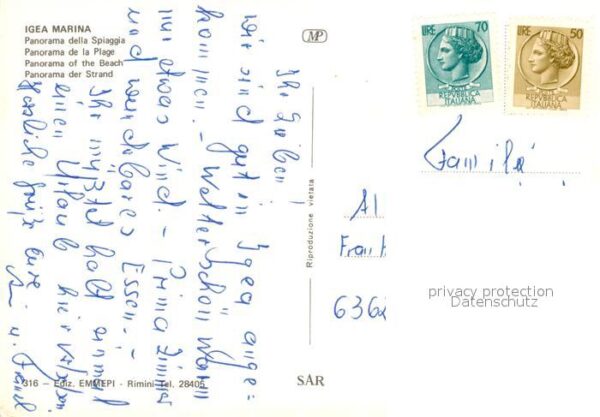 IGEA MARINA
Panorama della Spiaggia
Panorama de la Plage
Panorama of the Beach
Panorama der Strand
MP
LIRE 70
REPVBBLICA
ITALIANA
LIRE 50
REPVBBLICA
ITALIANA
Ihr Lieben!
wir sind gut in Igea ange=
kommen. - Wetter schön warm
nur etwas Wind. - Prima Zimmer
und wunderbares Essen. -
Ihr müßtet halt einmal
einen Urlaub hier
Herzliche Grüße Eure
u.
Riproduzione vietata
Familie
Al
Frank
6362
privacy protection
Datenschutz
316 - Ediz. EMMEPI - Rimini Tel. 28405
SAR